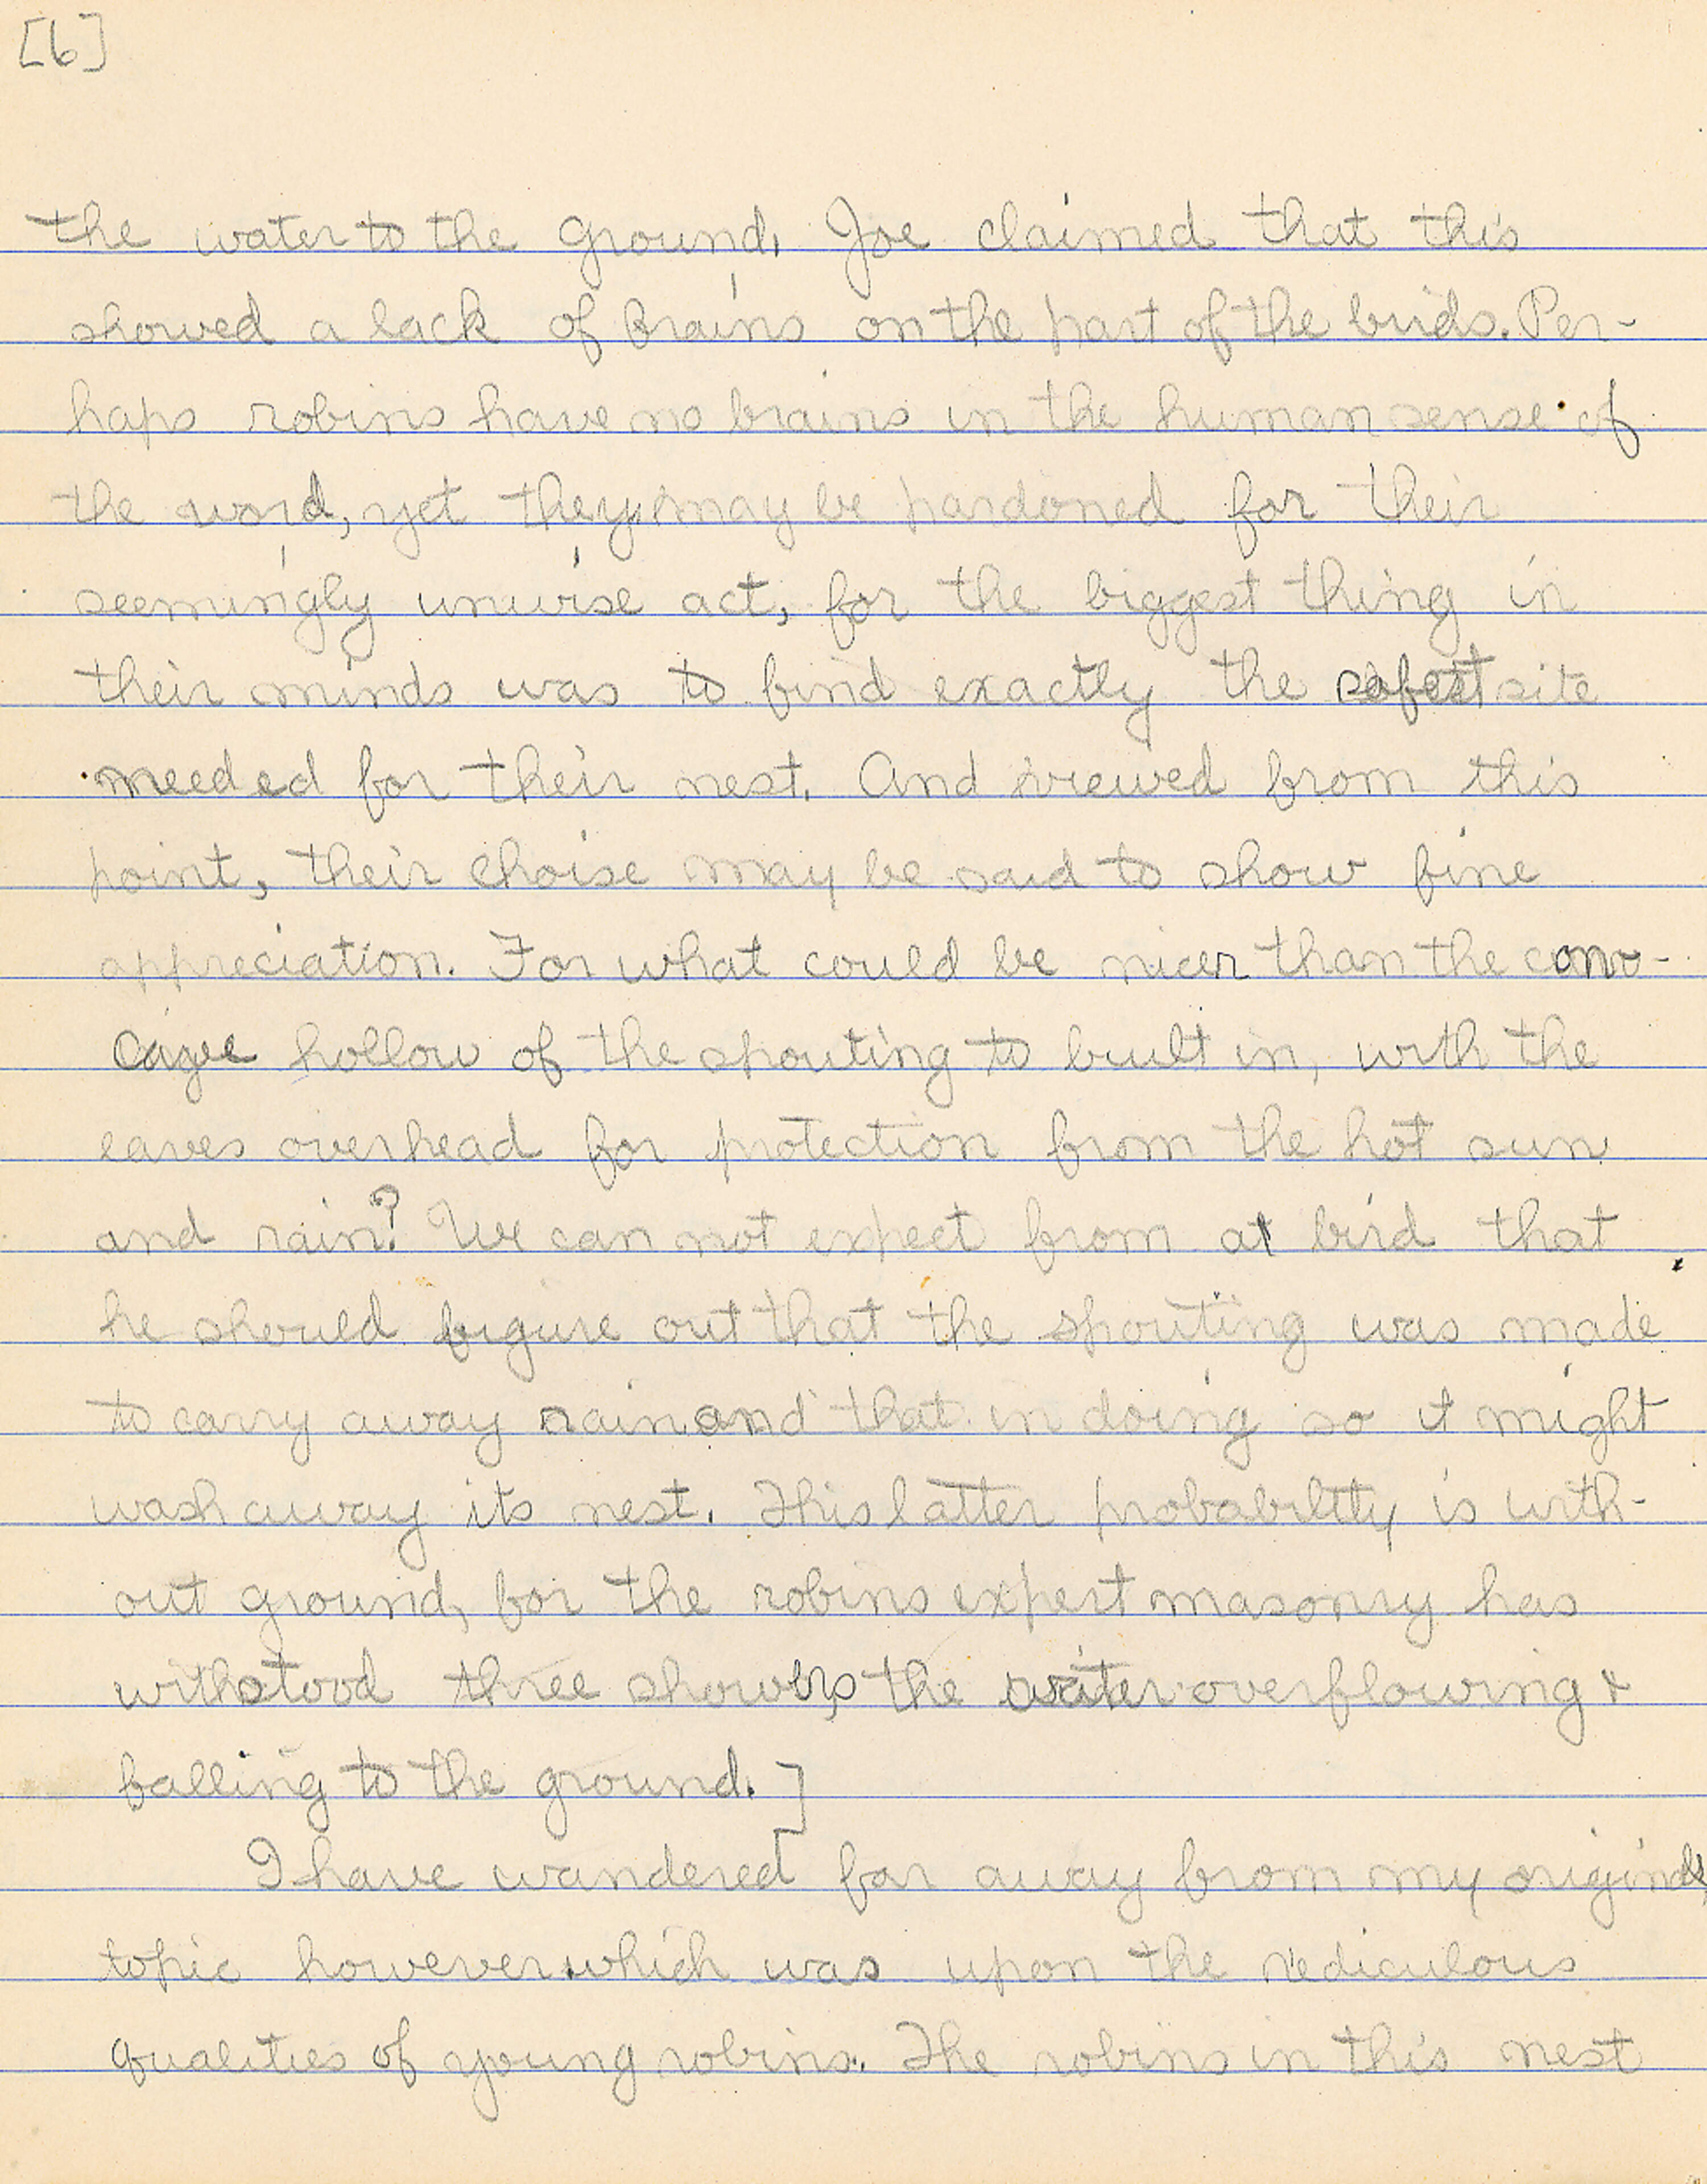 [6]
the water to the ground. Joe claimed that this
showed a lack of Brains on the part of the birds. Per-
haps robins have no brains in the human sense of
the word, yet they may be pardoned for their
seemingly unwise act, for the biggest thing in
their minds was to find exactly the safest site
needed for their nest. And viewed from this
point, their choise may be said to show fine
appreciation. For what could be nicer than the
hollow of the spouting to built in, with the
eaves overhead for protection from the hot sun
and rain? We can not expect from a bird that
he should figure out that the spouting was made
to carry away rain and that in doing so it might
wash away its nest. This latter probability is with-
out ground, for the robins expert masonry has
withstood three showers, the water overflowing &
falling to the ground.]
I have wandered far away from my original
topic however which was upon the rediculous
qualities of young robins. The robins in this nest